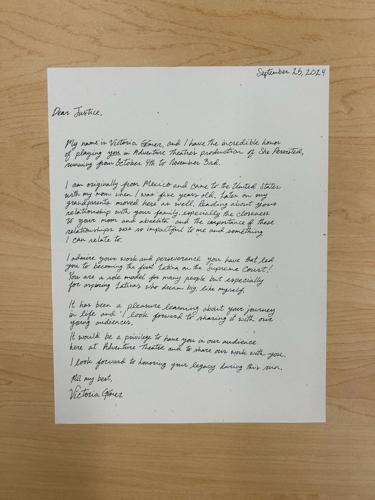 September 25, 2024
Dear Justice,
My name is Victoria Gómez, and I have the incredible honor
of playing you in Adventure Theatre's production of She Persisted,
running from October 4th to November 3rd.
I am originally from Mexico and came to the United States
with my mom when I was five years old. Later on my
grandparents moved here as well. Reading about your
relationship with your family, especially the closeness
to your mom and abuelita and the importance of these
relationships was so impactful to me and something
I can relate to.
I admire your work and perseverance you have that led
you to becoming the first Latina on the Supreme Court!
You are a role model for many people but especially
for aspiring Latinas who dream big like myself.
It has been a pleasure learning about your journey
in life and I look forward to sharing it with our
young audiences.
It would be a privilege to have you in our audience
here at Adventure Theatre and to share our work with you.
I look forward to honoring your legacy during this run.
All my best,
Victoria Gómez